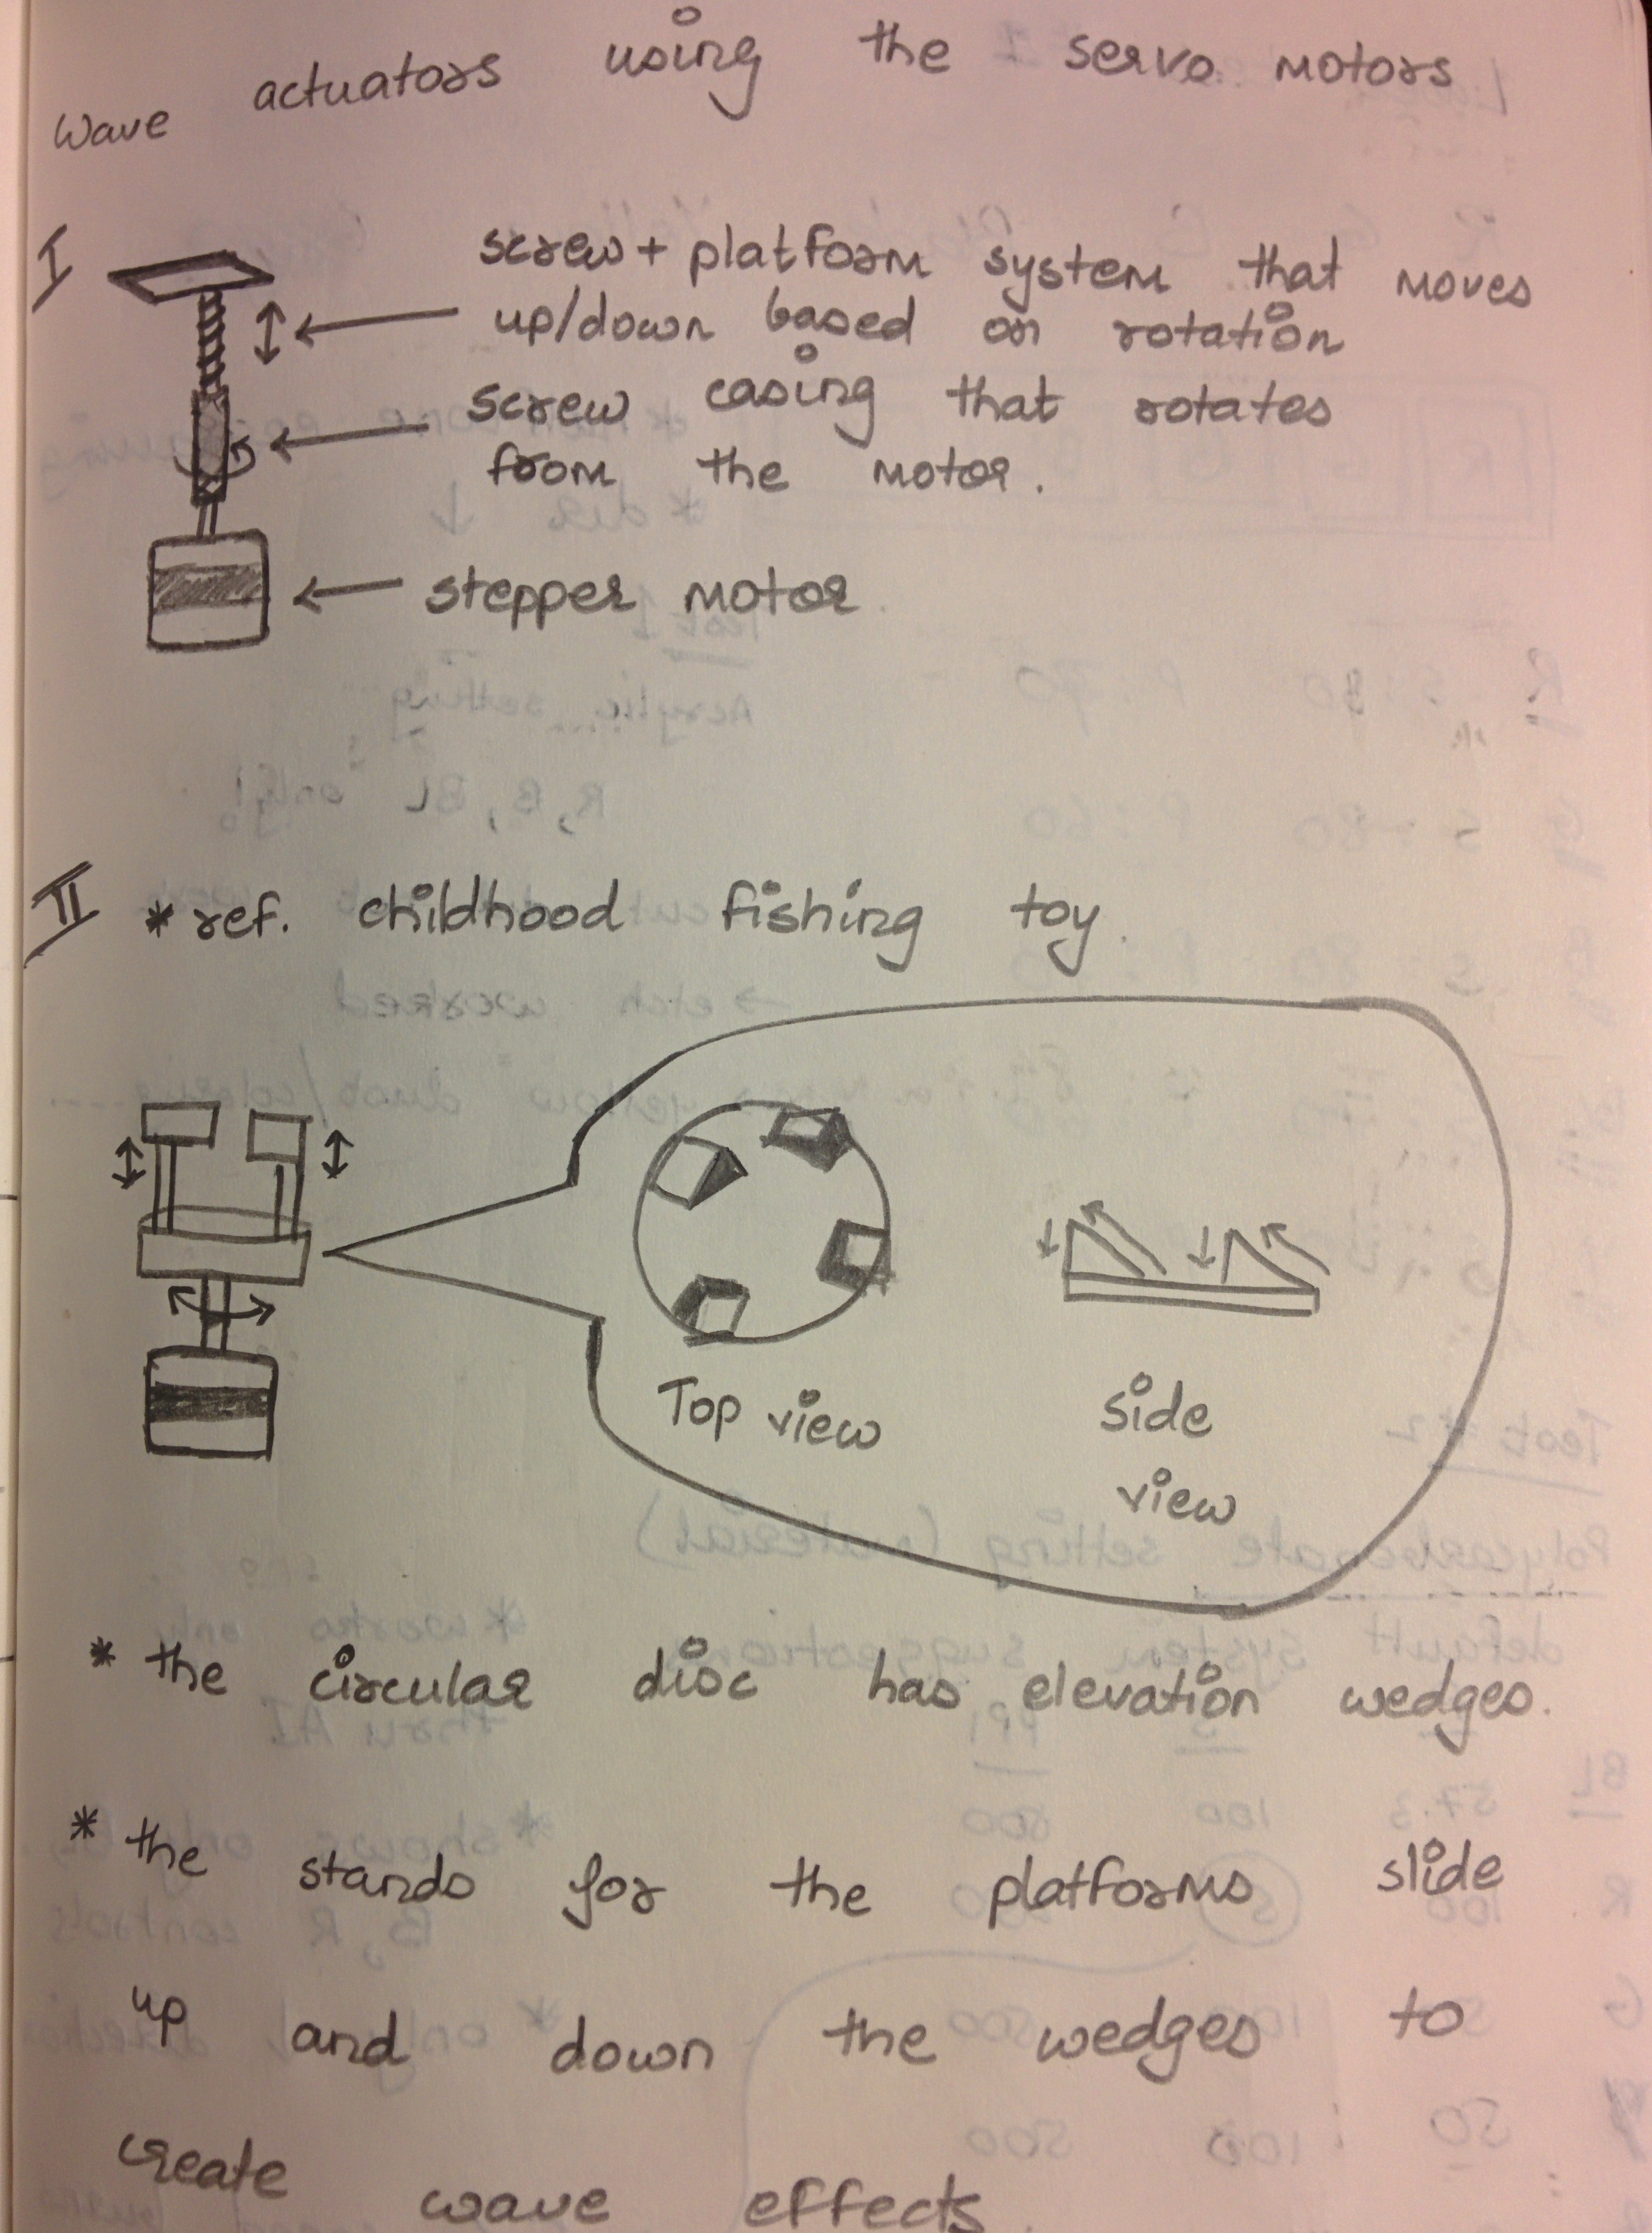 Wave actuators using the servo motors
I
screw + platform system that moves
up/down based on rotation
screw casing that rotates
from the motor.
stepper motor
II * ref. childhood fishing toy.
Top view
side
view
* the circular disc has elevation wedges.
* the stands for the platforms slide
up and down the wedges to
create wave effects.